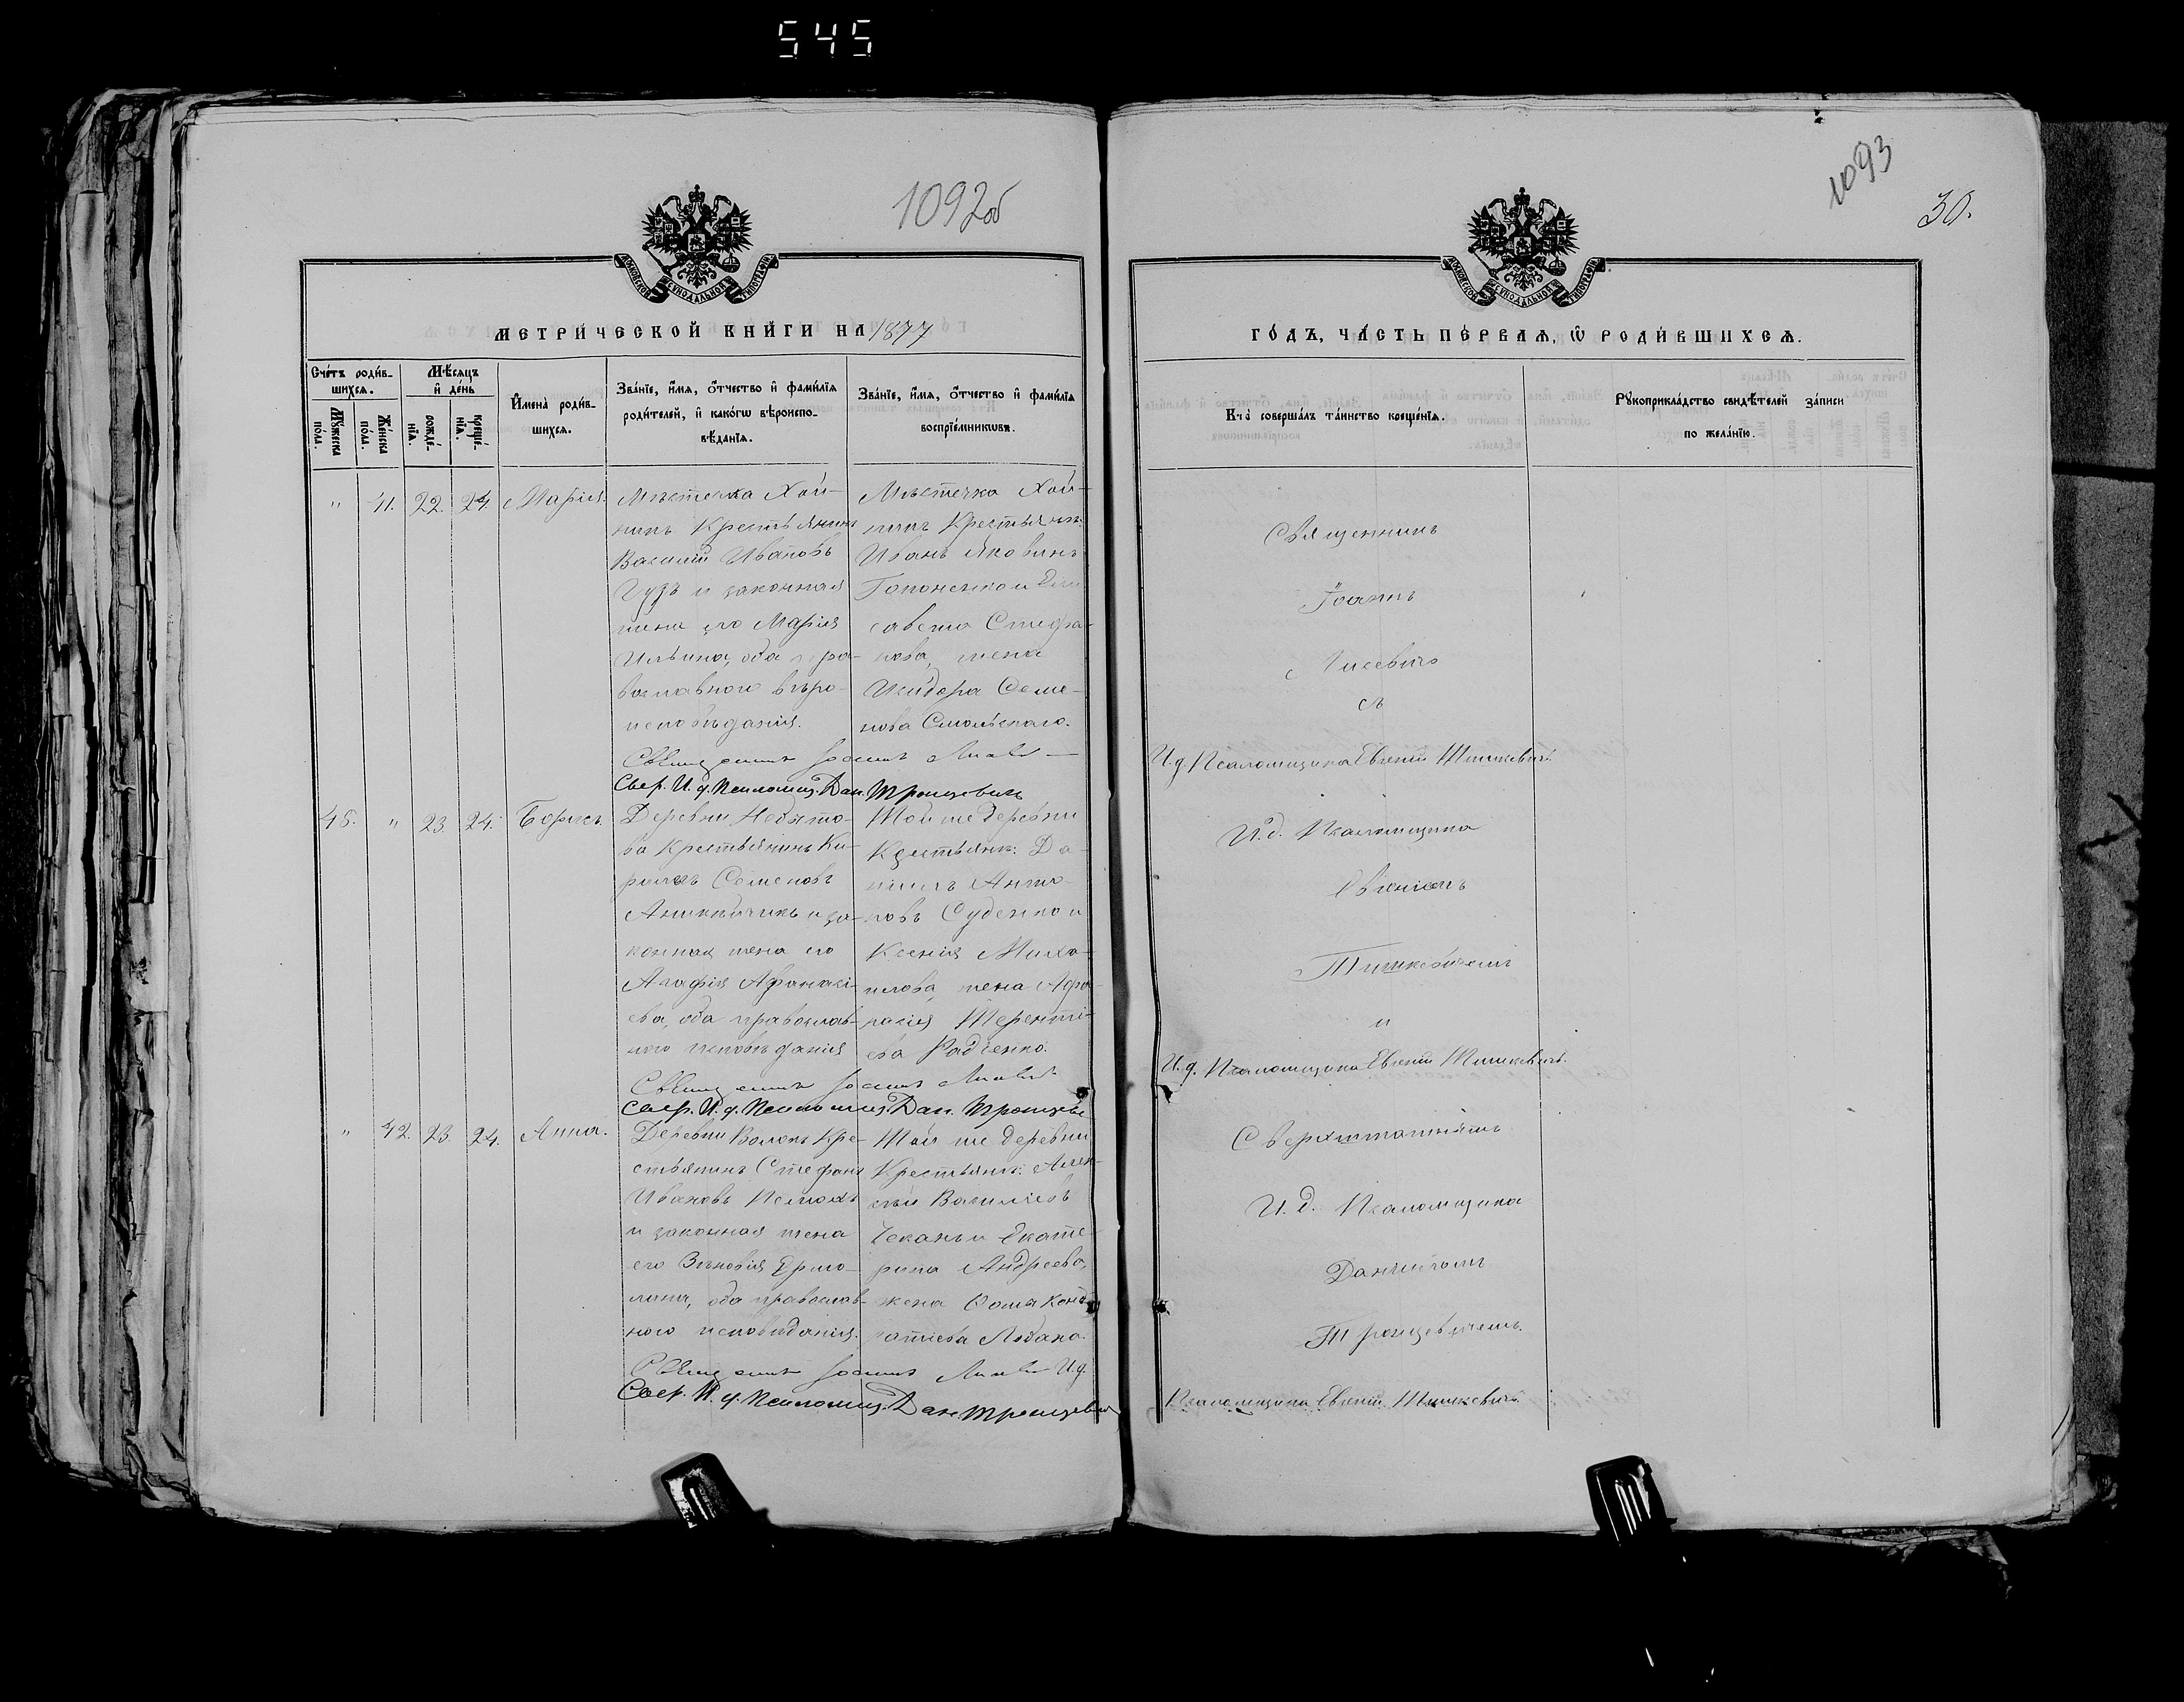 545
1092об
1093
30.
МОСКОВСКОЙ СѴНОДАЛЬНОЙ ТИПОГРАФІИ
МОСКОВСКОЙ СѴНОДАЛЬНОЙ ТИПОГРАФІИ
МЕТРИ́ЧЕСКОЙ КНИ́ГИ НА 1877
ГО́ДЪ, ЧА́СТЬ ПЕ́РВАѦ, Ѡ РОДИ́ВШИХСѦ.
Сче́тъ роди́в-
шихсѧ.
Мꙋжеска по́ла.
Же́нска по́ла.
Мѣ́сѧцъ и де́нь
рожде́-
нїѧ.
креще́-
нїѧ.
Имена̀ роди́в-
шихсѧ.
Зва́нїе, и́мѧ, ѻ́тчество и фами́лїѧ
роди́телей, и како́гѡ вѣроиспо-
вѣ́данїѧ.
Зва́нїе, и́мѧ, ѻ́тчество и фами́лїѧ
воспрїе́мникѡвъ.
Кто̀ соверша́лъ та́инство креще́нїѧ.
Рꙋкоприкла́дство свидѣ́телей за́писи
по жела́нїю.
" 41. 22. 24. Марія.
Мѣстечка Хой-
никъ Крестьянинъ
Василій Ивановъ
Гузъ и законная
жена его Марія
Ильина, оба пра-
вославного вѣро-
исповѣданія.
Мѣстечка Хой-
никъ Крестьянк:
Иванъ Яковинъ
Гопоненко и Ели
савета Стефа-
нова, жена
Исидора Семе-
нова Смольскаго.
Священникъ
Іоаннъ
Лисевичъ
съ
И.д. Псаломщика Евгеній Тишкевичъ.
Свер. И. д. Псаломщ. Дан. Троицевич
45. " 23. 24. Борисъ.
Деревни Небыто-
ва Крестьянинъ Ки-
рилъ Семеновъ
и за-
конная жена его
Агафія Афанасі-
ева, оба православ-
ного исповѣданія
Той же деревни
Крестьянк: Да-
нилъ Анто-
новъ Суденко и
Ксенія Миха-
илова, жена Афа-
насія Теренті-
ева Радченко.
И. д. Псаломщика
Евгеніемъ
Тишкевичемъ
и
И. д. Псаломщика Евгеній Тишкевичъ.
Свер. И. д. Псаломщ. Дан. Троицевич
" 42. 23. 24. Анна.
Деревни Волокъ Кре-
стьянинъ Стефанъ
Ивановъ
и законная жена
его Зѣновія Ермо-
лина, оба православ-
ного исповѣданія.
Той же деревни
Крестьянк: Алек-
сѣй Василіевъ
Чеканъ и Екате-
рина Андреева,
жена Ѳомы Конд-
ратіева Лобана.
Сверхштатнымъ
И. д. Псаломщика
Даниломъ
Троицевичемъ.
И.д.
Псаломщика Евгеній Тишкевичъ.
Свер. И. д. Псаломщ. Дан Троицевич